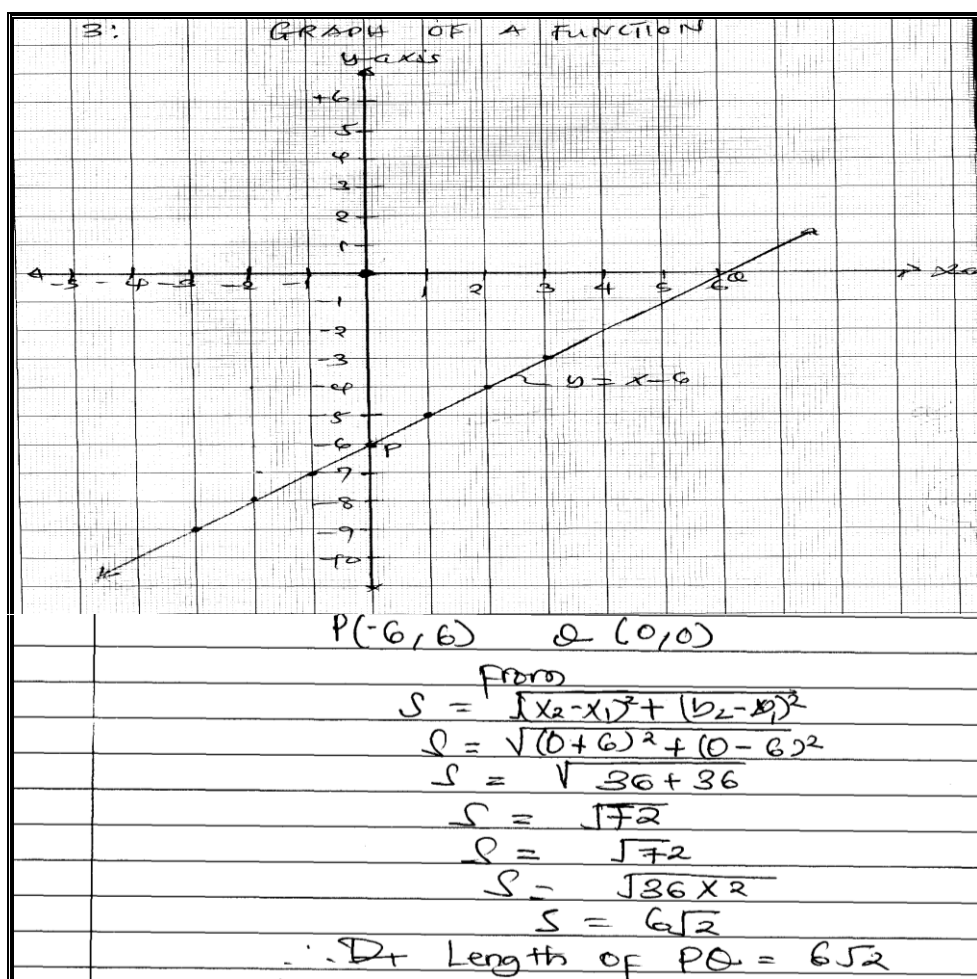 3: GRAPH OF A FUNCTION
y-axis
+6
5
4
3
2
1
-5 -4 -3 -2 -1 1 2 3 4 5 6 Q
-1
-2
-3
-4 y = x-6
-5
-6 P
-7
-8
-9
-10
P(-6,6) Q (0,0)
From
S = √(x₂-x₁)² + (y₂-y₁)²
S = √(0+6)² + (0-6)²
S = √36+36
S = √72
S = √72
S = √36×2
S = 6√2
∴ Length of PQ = 6√2